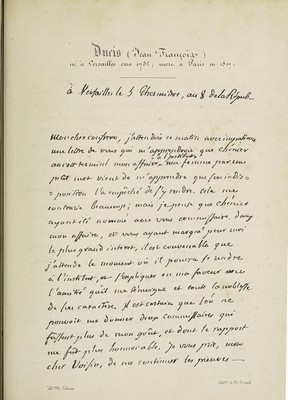 Ducis (Jean François)
né à Versailles vers 1735, mort à Paris en 1817.
à Versailles le 5 Thermidor, au 8 de la Répub.
Mon cher confrère, j'attendois ce matin avec impatience
une lettre de vous qui m'apprendroit que chénier
auroit terminé mon affaire à l'institut. ma femme par un
petit mot vient de m'apprendre que son indis-
position l'a empêché de s'y rendre. cela me
contrarie beaucoup; mais je pense que chénier
ayant été nommé avec vous commissaire dans
mon affaire, et vous ayant marqué pour moi
le plus grand intérêt, il est convenable que
j'attende le moment où il pourra se rendre
à l'institut, et s'expliquer en ma faveur avec
l'amitié qu'il me témoigne et toute la noblesse
de son caractère. Il est certain que l'on ne
pouvoit me donner deux commissaires qui
fussent plus de mon goût, et dont le rapport
me fût plus honorable. Je vous prie, mon
cher Voisin, de me continuer les preuves —